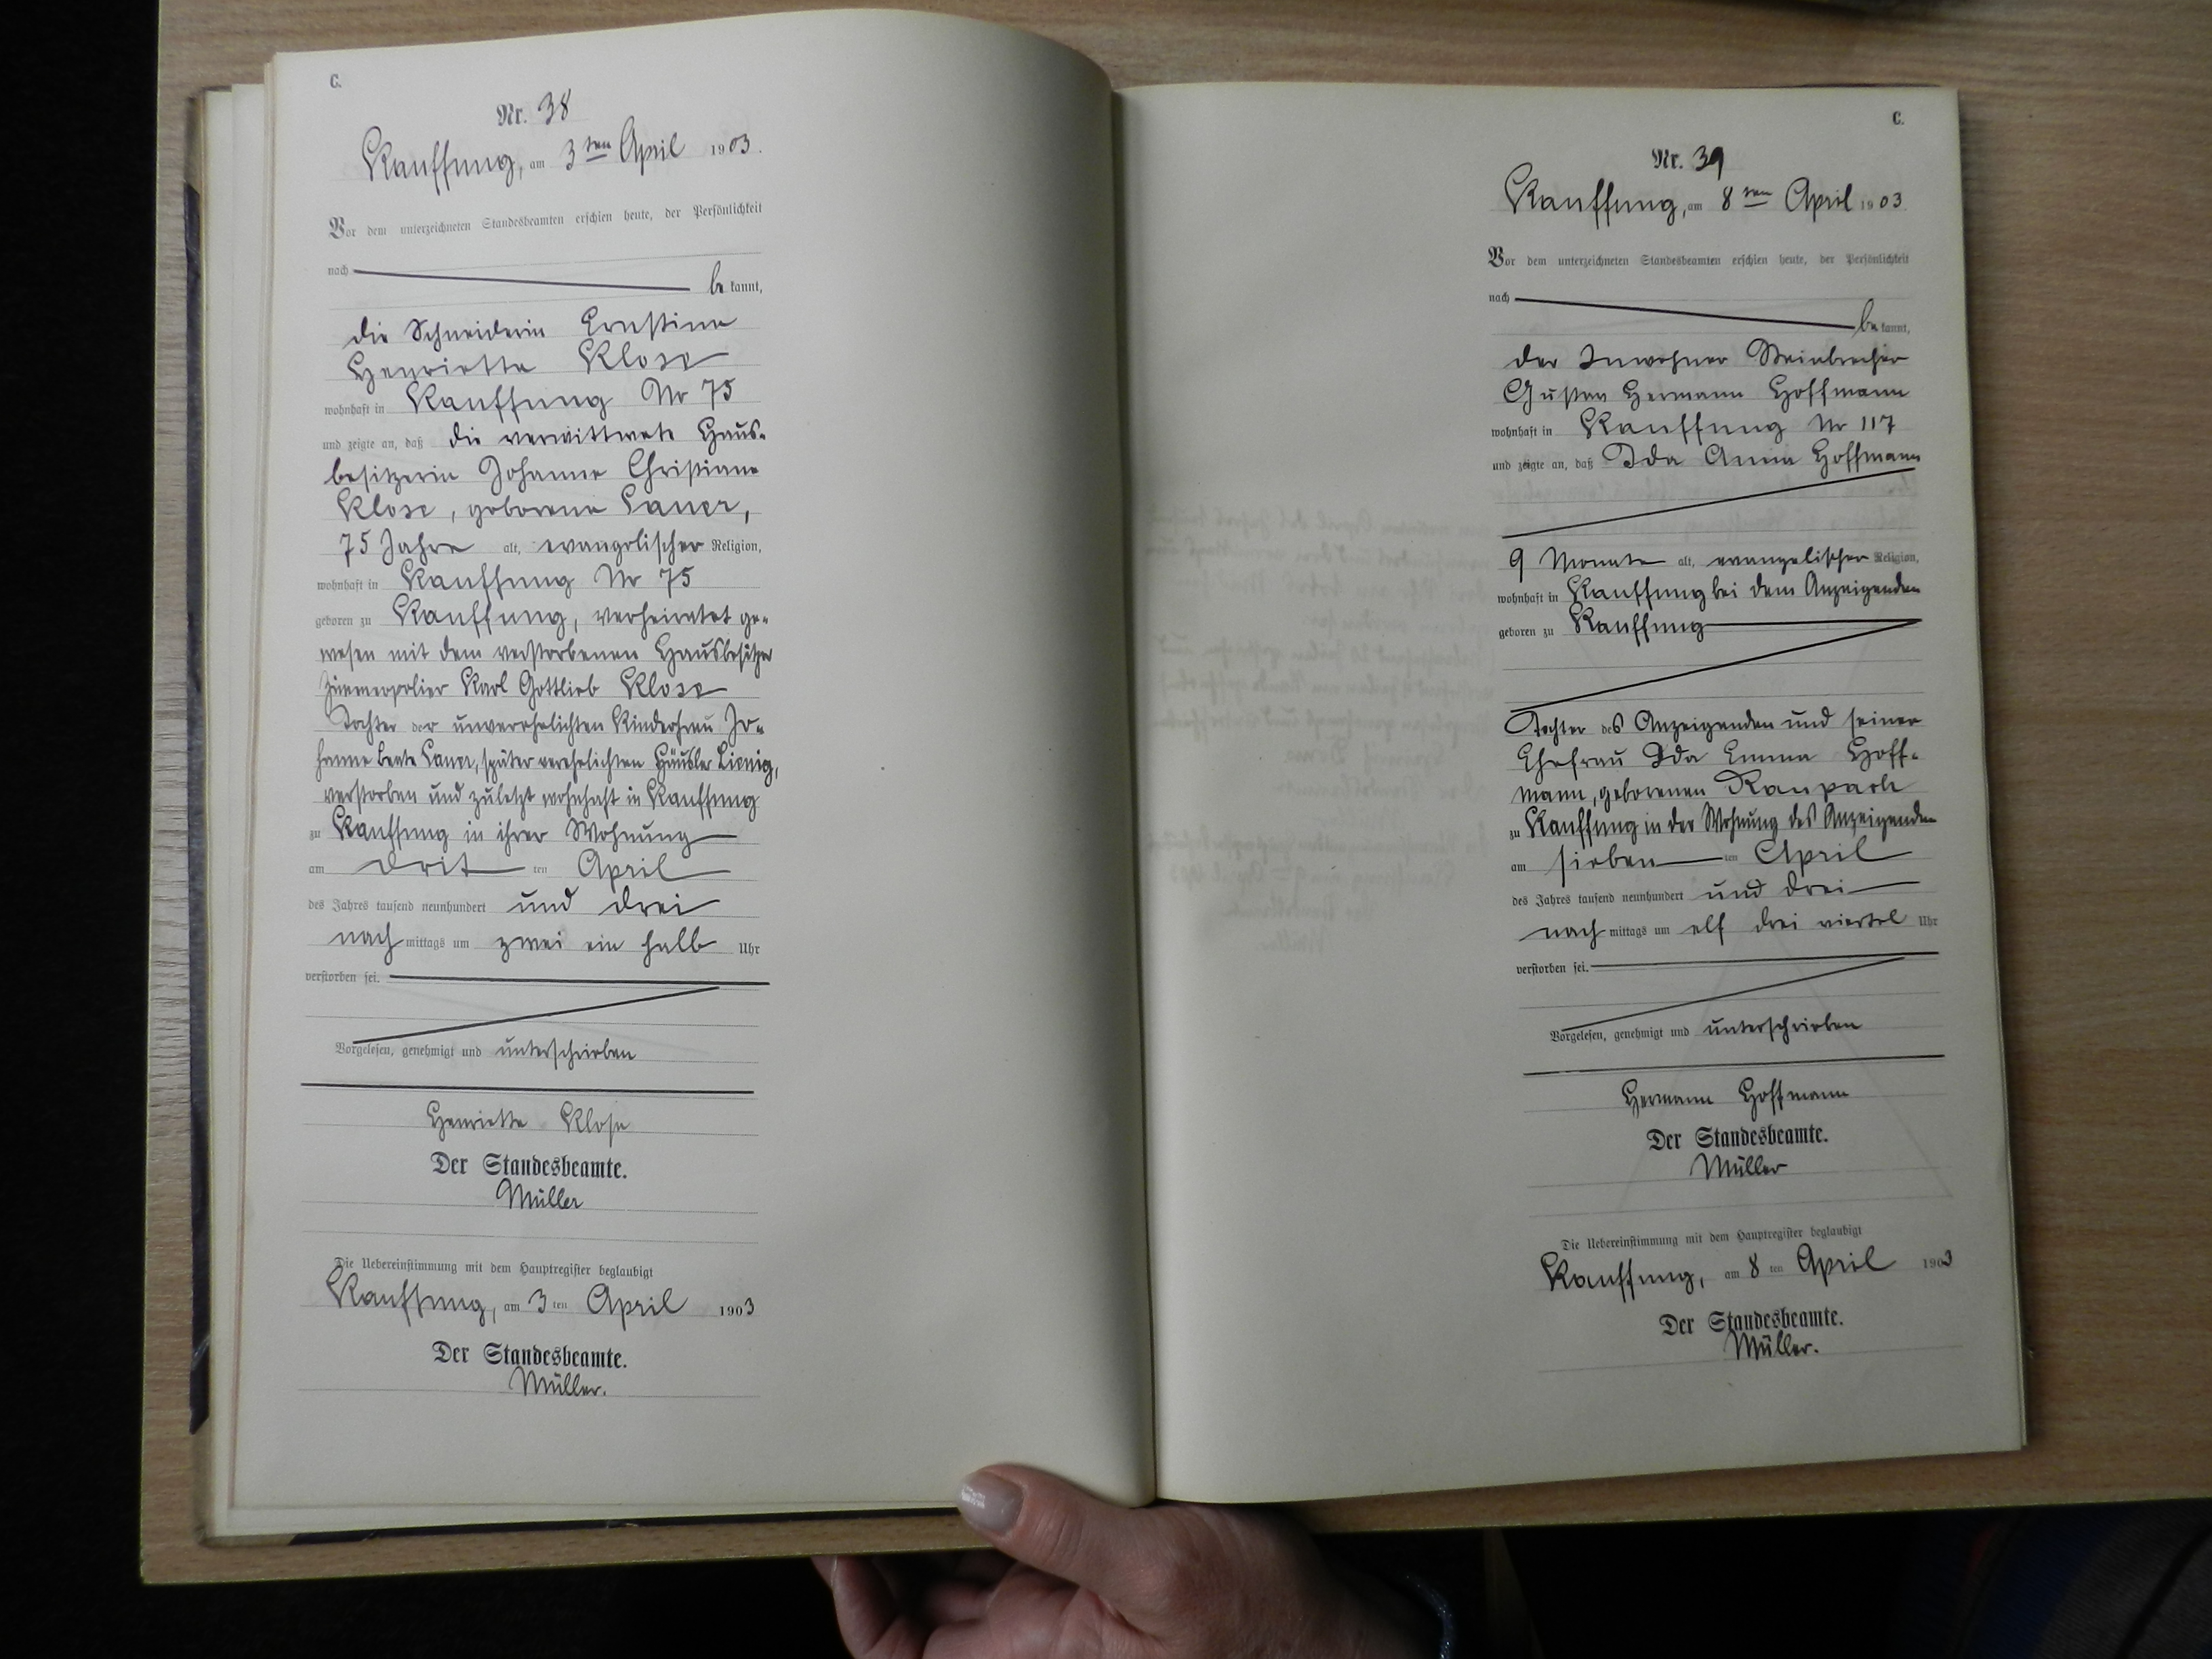 C.
Nr. 38
Kauffung, am 3ten April 1903.
Vor dem unterzeichneten Standesbeamten erschien heute, der Persönlichkeit
nach be kannt,
die Schneiderin Ernstine
Henriette Klose
wohnhaft in Kauffung Nr 75
und zeigte an, daß die verwittwete Haus-
besitzerin Johanne Christiane
Klose, geborene Sauer,
75 Jahre alt, evangelischer Religion,
wohnhaft in Kauffung Nr 75
geboren zu Kauffung, verheiratet ge-
wesen mit dem verstorbenen Hausbesitzer
Zimmerpolier Karl Gottlieb Klose
Tochter der unverehelichten Kinderfrau Jo-
hanne Beate Sauer, später verehelichten Häusler Lienig,
verstorben und zuletzt wohnhaft in Kauffung
zu Kauffung in ihrer Wohnung
am drit ten April
des Jahres tausend neunhundert und drei
nach mittags um zwei ein halb Uhr
verstorben sei.
Vorgelesen, genehmigt und unterschrieben
Henriette Klose
Der Standesbeamte.
Müller
Die Uebereinstimmung mit dem Hauptregister beglaubigt
Kauffung, am 3 ten April 1903
Der Standesbeamte.
Müller.
C.
Nr. 39
Kauffung, am 8ten April 1903
Vor dem unterzeichneten Standesbeamten erschien heute, der Persönlichkeit
nach be kannt,
der Inwohner Steinbrecher
Gustav Hermann Hoffmann
wohnhaft in Kauffung Nr 117
und zeigte an, daß Ida Anna Hoffmann
9 Monate alt, evangelischer Religion,
wohnhaft in Kauffung bei dem Anzeigenden
geboren zu Kauffung
Tochter des Anzeigenden und seiner
Ehefrau Ida Emma Hoff-
mann, geborenen Raupach
zu Kauffung in der Wohnung des Anzeigenden
am sieben ten April
des Jahres tausend neunhundert und drei
nach mittags um elf drei viertel Uhr
verstorben sei.
Vorgelesen, genehmigt und unterschrieben
Hermann Hoffmann
Der Standesbeamte.
Müller
Die Uebereinstimmung mit dem Hauptregister beglaubigt
Kauffung, am 8 ten April 1903
Der Standesbeamte.
Müller.